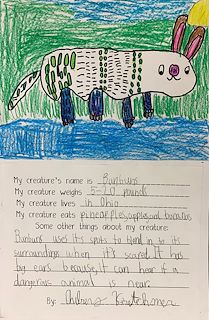 My creature's name is Bunbuns
My creature weighs 5-10 pounds
My creature lives in Ohio
My creature eats pineapples, apples, and bananas
Some other things about my creature:
Bunbuns uses it's spots to blend in to its
surroundings when it's scared. It has
big ears because, it can hear if a
dangerous animal is near.
By: